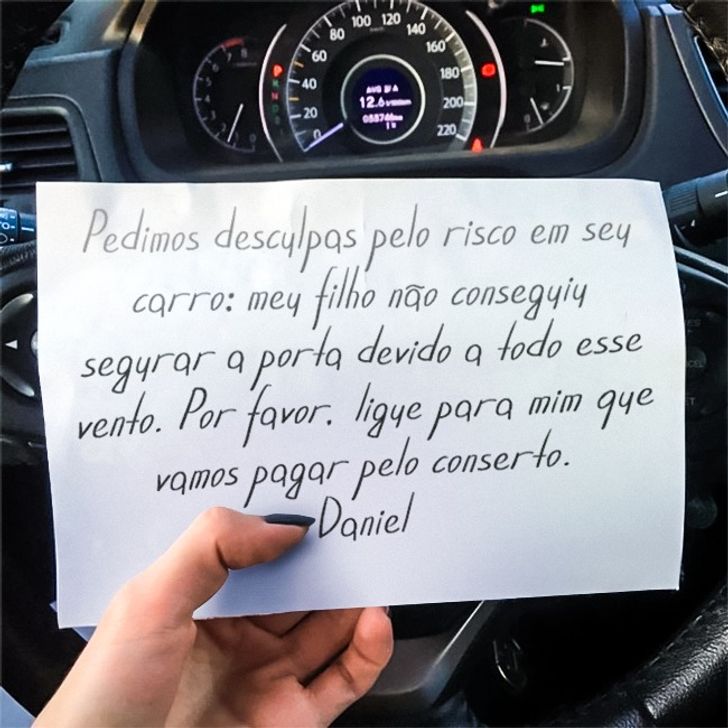 80 100 120 140
60 160
40 180
20 200
0 220
12.6
Pedimos desculpas pelo risco em seu
carro: meu filho não conseguiu
segurar a porta devido a todo esse
vento. Por favor, ligue para mim que
vamos pagar pelo conserto.
Daniel